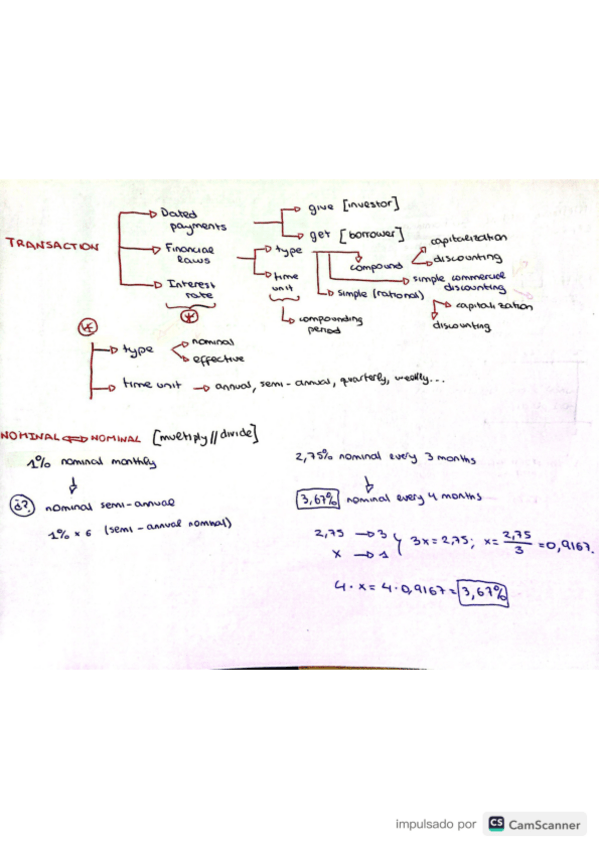 TRANSACTION
Dated payments
give [investor]
get [borrower]
Financial laws
type
compound
capitalization
discounting
simple commercial discounting
simple (rational)
capitalization
discounting
time unit
compounding period
Interest rate
*
*
type
nominal
effective
time unit → annual, semi-annual, quarterly, weekly...
NOMINAL ⇔ NOMINAL [multiply//divide]
1% nominal monthly
¿? nominal semi-annual
1% x 6 (semi-annual nominal)
2,75% nominal every 3 months
3,67% nominal every 4 months
2,75 → 3
x → 1
3x = 2,75; x = 2,75/3 = 0,9167.
4 · x = 4 · 0,9167 = 3,67%
impulsado por CS CamScanner